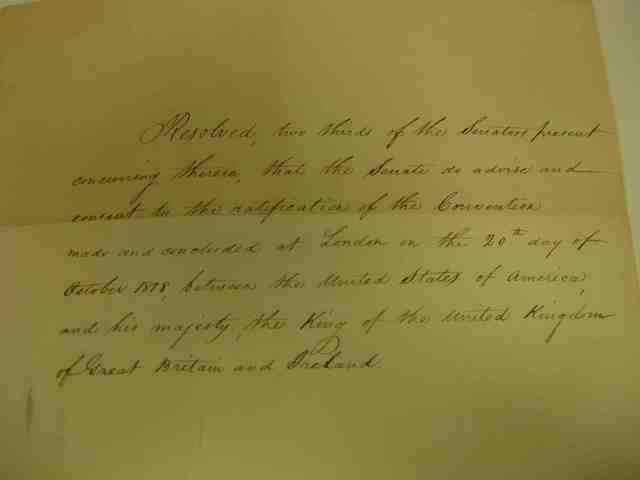 Resolved, two thirds of the Senators present
concurring therein, that the Senate do advise and
consent to the ratification of the Convention
made and concluded at London on the 20th day of
October 1818, between the United States of America,
and his majesty, the King of the United Kingdom
of Great Britain and Ireland.